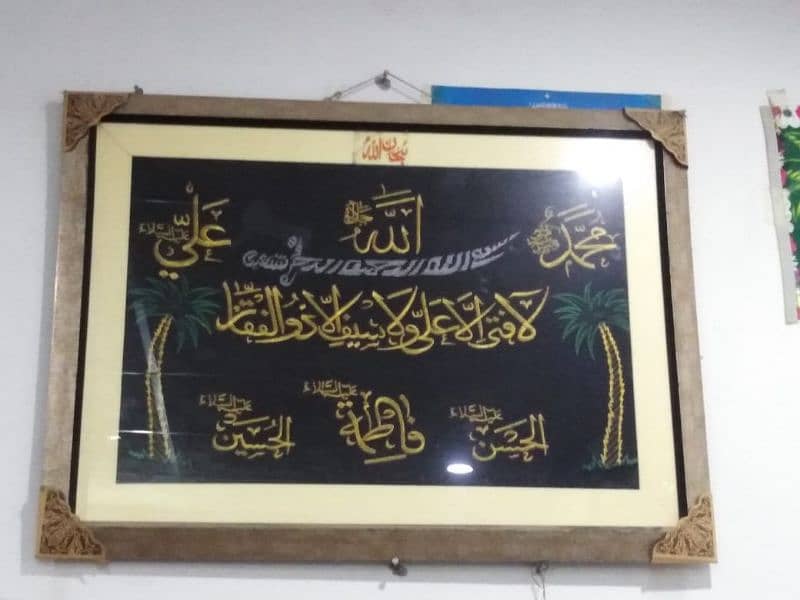 سبحان الله
محمد الله جل جلاله علي عليه السلام
بسم الله الرحمن الرحيم
لا فتى الا علي ولا سيف الا ذو الفقار
الحسن عليه السلام فاطمة عليها السلام الحسين عليه السلام